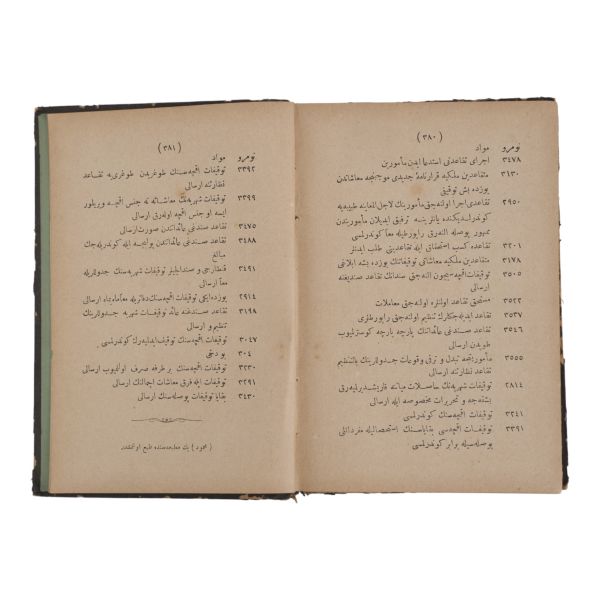 ( ٣٨٠ )
نومرو مواد
٣٤٧٨ اجرای تقاعدنی استدعا ایدن مأمورین
٣١٣٠ متقاعدین ملکیه قرارنامهٔ جدیدی موجبنجه معاشاتدن
یوزده بش توقیفی
٢٩٥٠ تقاعدی اجرا اولنه‌جق مأمورینك لاجل المعاینه طبیبه
کوندرلدیکنده یانلرینه ترفیق ایدیلان مأموردن
ممهور پوصله النه‌رق راپورطیله معاً کوندرلسی
٣٢٠١ تقاعده کسب استحقاق ایله تقاعدیتی طلب ایدنلر
٣١٧٨ متقاعدین ملکیه معاشاتی توقیفاتنك یوزده بشه ابلاغی
٣٥٠٥ توقیفات اقچه‌سیچون النه‌جق سندانك تقاعد صندیغنه
ارسالی
٣٥٢٢ مستحق تقاعد اولنلره اولنه‌جق معاملات
٣٥٣٧ تقاعد ایدیله‌جکلرك تنظیم اولنه‌جق راپورطلری
٣٥٤٦ تقاعد صندغی عائداتنك پارچه پارچه کوسترلیوب
طوپدن ارسالی
٣٥٥٥ مأمورینجه تبدل و ترقی وقوعات جدوللرینك بالتنظیم
تقاعد نظارتنه ارسالی
٢٨١٤ توقیفات شهریه‌نك حاصلات مباننه قاریشدیرلمیه‌رق
بشقه‌جه و تحریرات مخصوصه ایله ارسالی
٣٢٤١ توقیفات اقچه‌سنك کوندرلسی
٣٣٩١ توقیفات اقچه‌سی بقایاسنك استحصالیله مفرداتلی
پوصله‌سیله برابر کوندرلسی
( ٣٨١ )
نومرو مواد
٣٣٩٢ توقیفات اقچه‌سنك طوغریدن طوغری‌یه تقاعد
نظارتنه ارسالی
٣٣٩٩ توقیفات شهریه‌نك معاشاته نه جنس اقچه ویریلور
ایسه او جنس اقچه اوله‌رق ارسالی
٣٤٧٥ تقاعد صندغی عائداتندن صورت ارسالی
٣٤٨٨ تقاعد صندغی عائداتندن پولیجه ایله کوندریله‌جك
مبالغ
٣٤٩١ قنطارجی و صندالیلر توقیفات شهریه‌سنك جدوللریله
معاً ارسالی
٢٩١٤ یوزده ایکی توقیفات اقچه‌سنك دفاتریله معاً ماه بماه ارسالی
٣١٩٨ تقاعد صندغی عائد توقیفات شهریه جدوللرینك
تنظیم و ارسالی
٣٠٤٧ توقیفات اقچه‌سنك توقیف ایدلیه‌رك کوندرلسی
٣٠٤ بو دخی
٣٢٣٠ توقیفات اقچه‌سنك بر طرفه صرف اولنمیوب ارسالی
٣٢٩١ توقیفات ایله فرق معاشات اجمالنك ارسالی
٣٤٣٠ بقایا توقیفات پوصله‌سنك ارسالی
( محمود ) بك مطبعه‌سنده طبع اولنمشدر